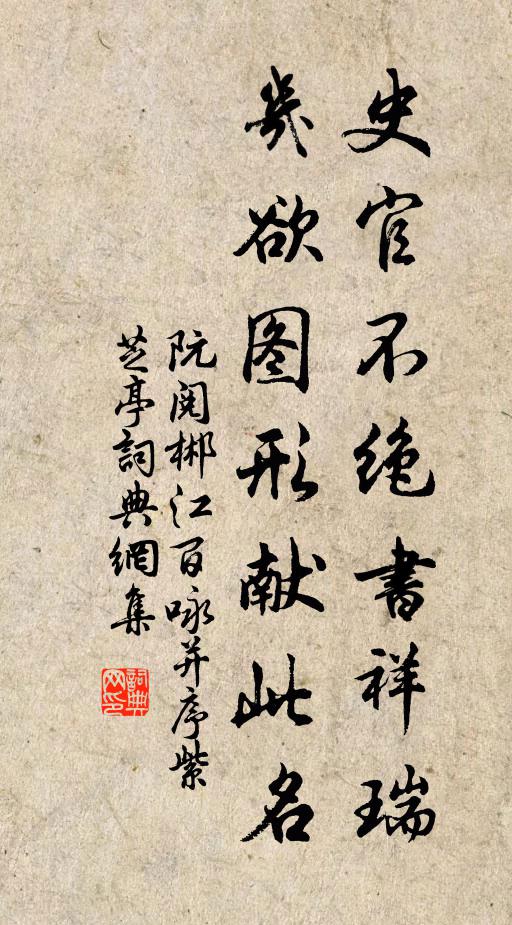 史官不绝書祥瑞
幾欲图形献此名
阮阅郴江百咏并序紫
芝亭詞典網集
詞典网印